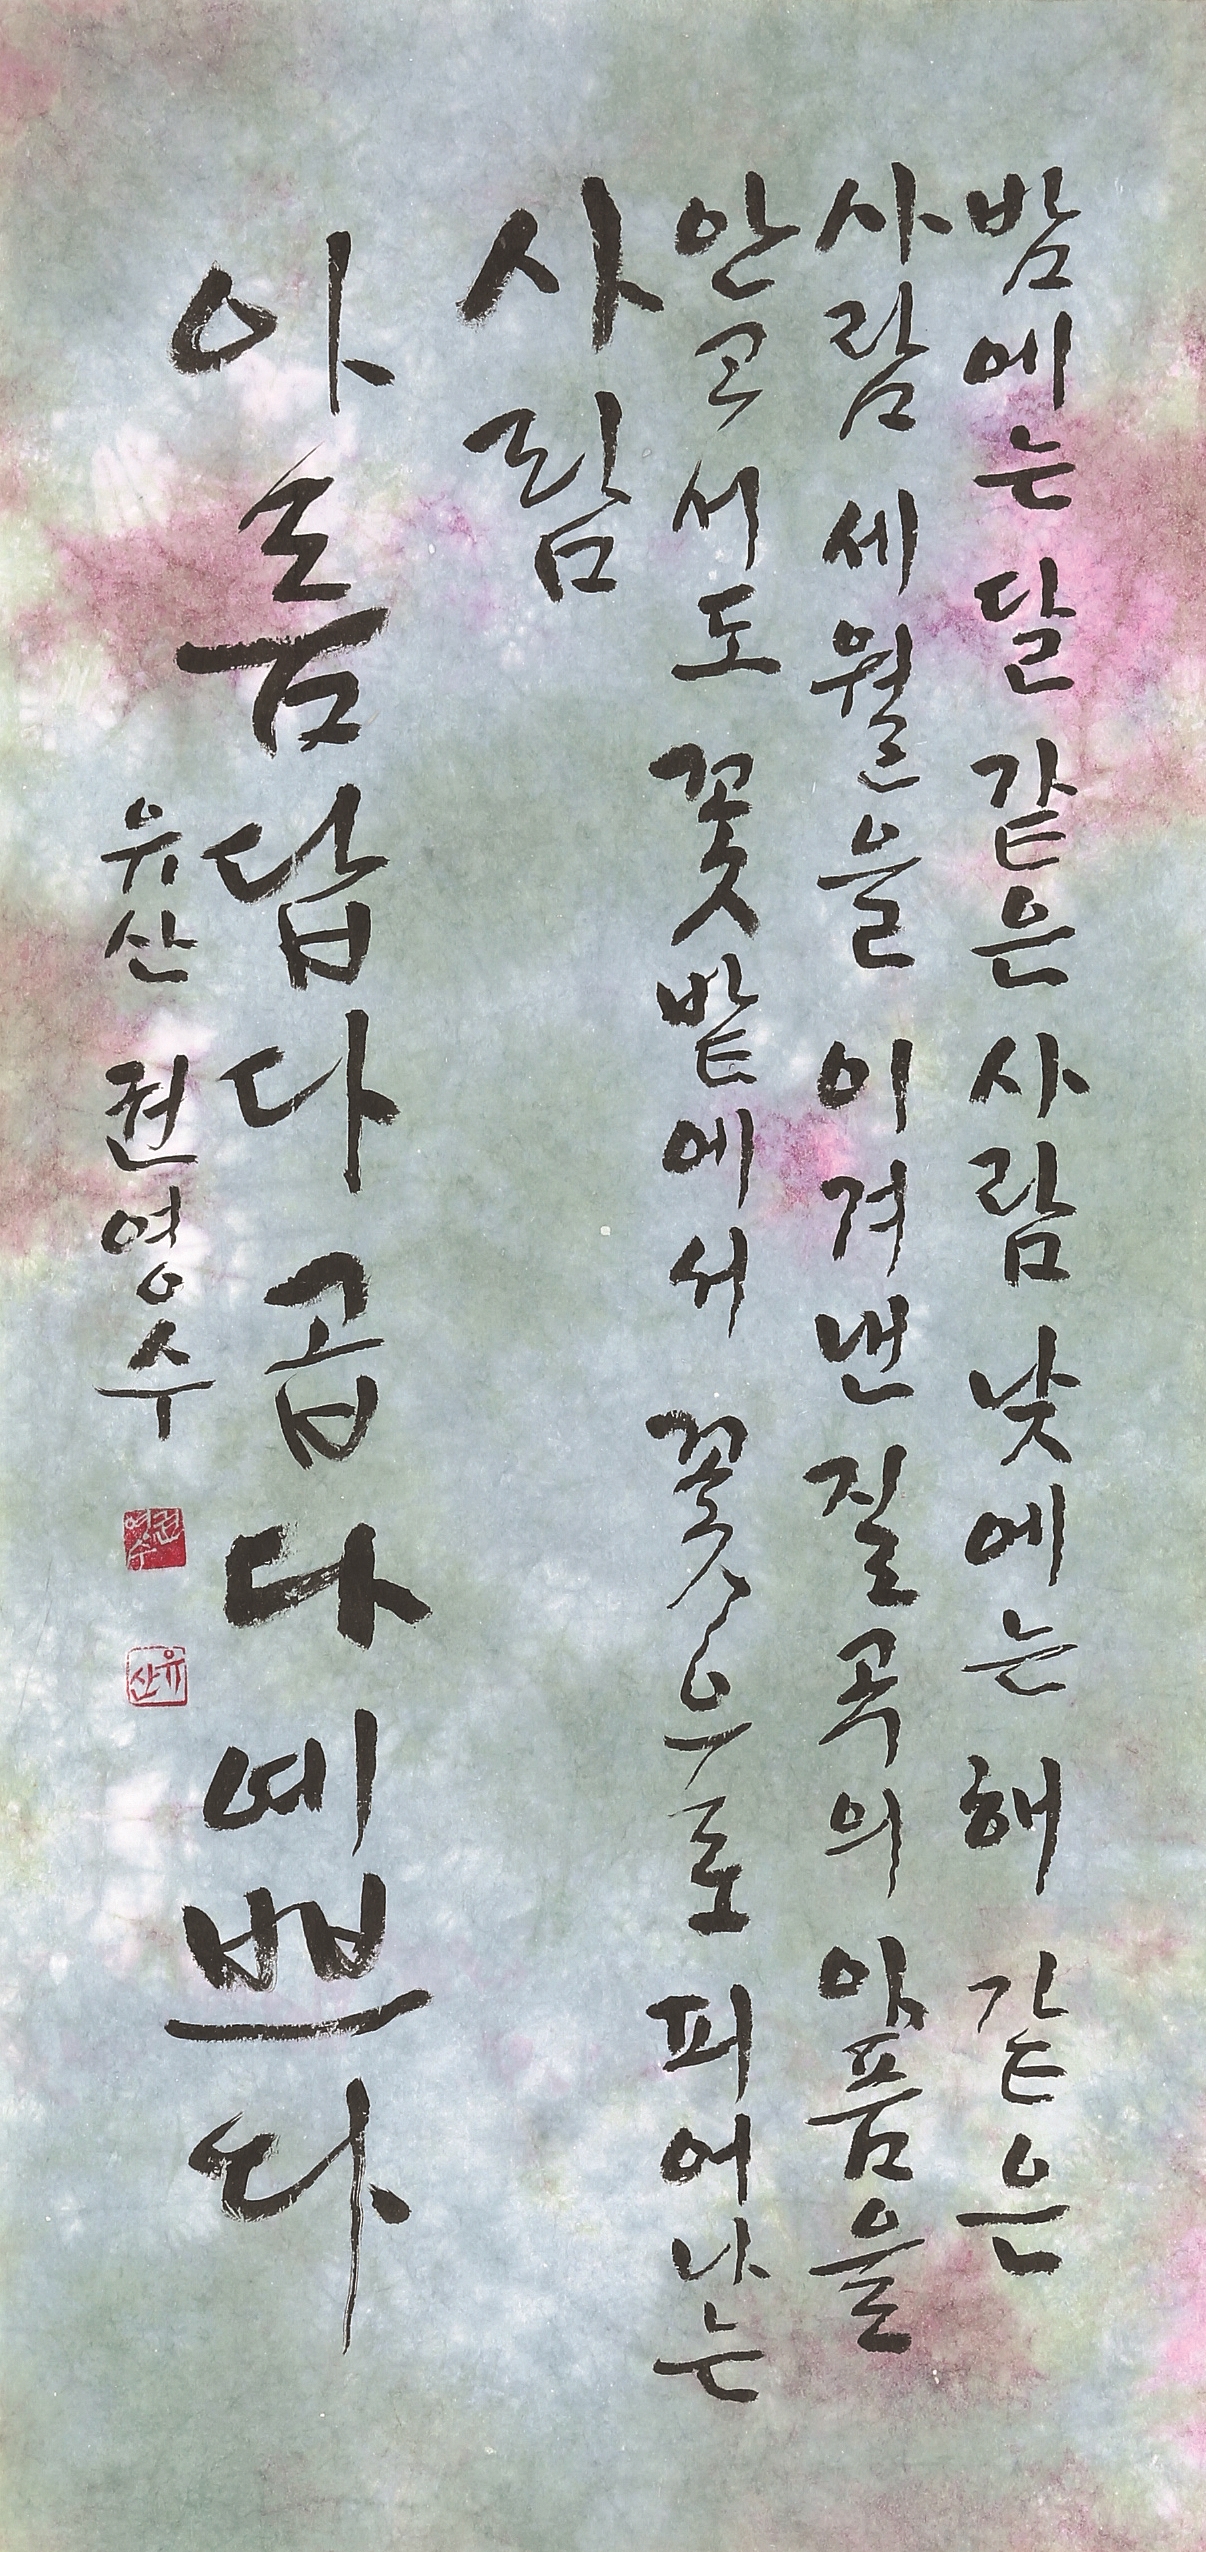 밤에는 달 같은 사람 낮에는 해 같은
사람 세월을 이겨낸 질곡의 아픔을
안고서도 꽃밭에서 꽃으로 피어나는
사람
아름답다 곱다 예쁘다
유산 권영수
권영수
유산